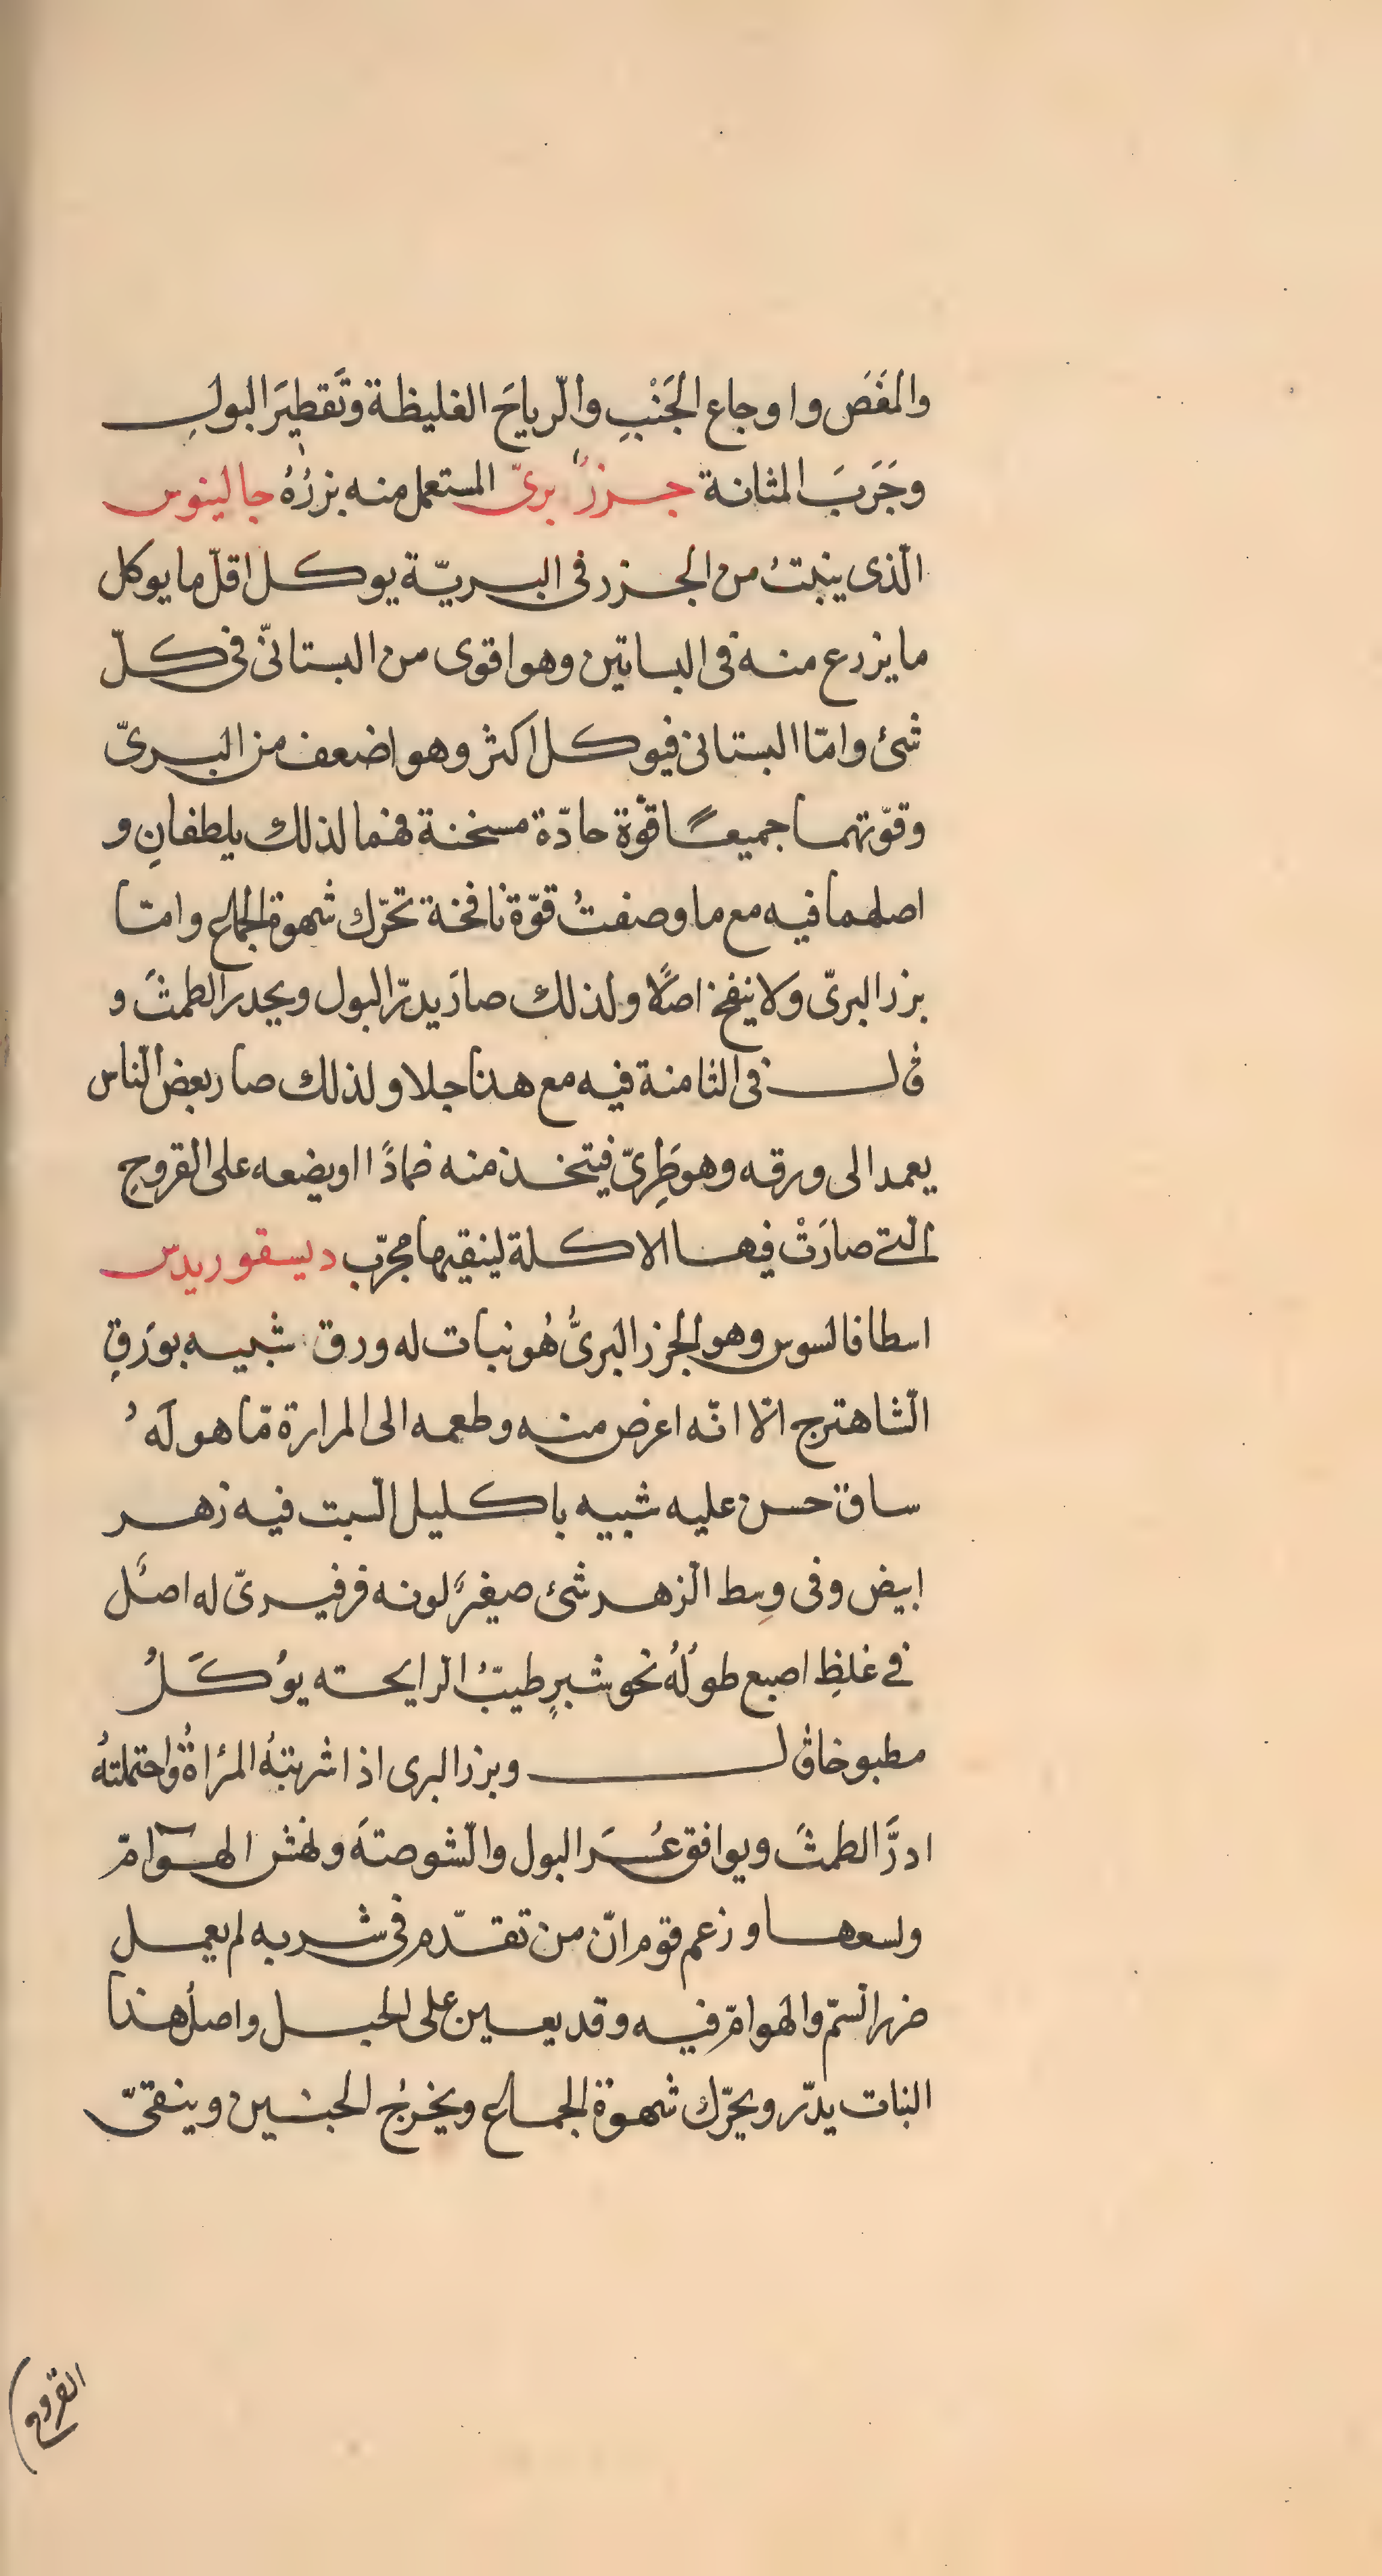 والمَغَصَ واوجاع الجَنْبِ والّرياحَ الغليظة وتَقطيرَ البولِ
وجَرَبَ المثانة جزرٌ برىّ المستعمل منه بزرُهُ جالينوس
الّذى ينبتُ من الجزر فى البريّة يوكل اقلّ ما يوكل
ما يزرع منه فى البساتين وهو اقوى من البستانىّ فى كلّ
شئ وامّا البستانى فيوكل اكثر وهو اضعف من البرىّ
وقوّتهما جميعًا قوّة حادّة مسخنة فهما لذلك يلطفانِ و
اصلهما فيه مع ما وصفتُ قوّة نافخة تحرّك شهوة الجماع وامّا
بزر البرىّ ولا ينفخ اصلًا ولذلك صارَ يدرّ البول ويحدر الطمثَ و
قال فى الثامنة فيه مع هذا جلا ولذلك صار بعض الّناس
يعمد الى ورقه وهو طَرِىّ فيتخذ منه ضمادًا او يضعه على القروحِ
الّتى صارَتْ فيها الاكلة لينقيها مجرّب ديسقوريدس
اسطافالسوس وهو الجزر البرىُّ هُو نبات له ورق شبيه بورَقِ
الّشاهترج الّا انّه اعرض منه وطعمه الى المرارة مّا هو لَهُ
ساق حسن عليه شبيه باكليل الّسبت فيه زهر
ابيض وفى وِسط الّزهر شئ صغيرٌ لونه فرفيرىّ له اصل
فى غلظِ اصبع طولُهُ نحو شبرٍ طيّبُ الرايحته يوُكَلُ
مطبوخا قال وبزر البرى اذا شربتهُ المرُاةُ واحتملتهُ
ادرَّ الطمثَ ويوافق عُسرَ البول والّشوصتهَ ونهش الهوآمّ
ولسعها وزعم قوم انّ من تقدّم فى شربه لم يعمل
ضرر الّسمّ والهوامّ فيه وقد يعين على الحبل واصلُ هذا
النبات يدّر ويحرّك شهوة الجماع ويخرجُ الجنين وينقىّ
القروح